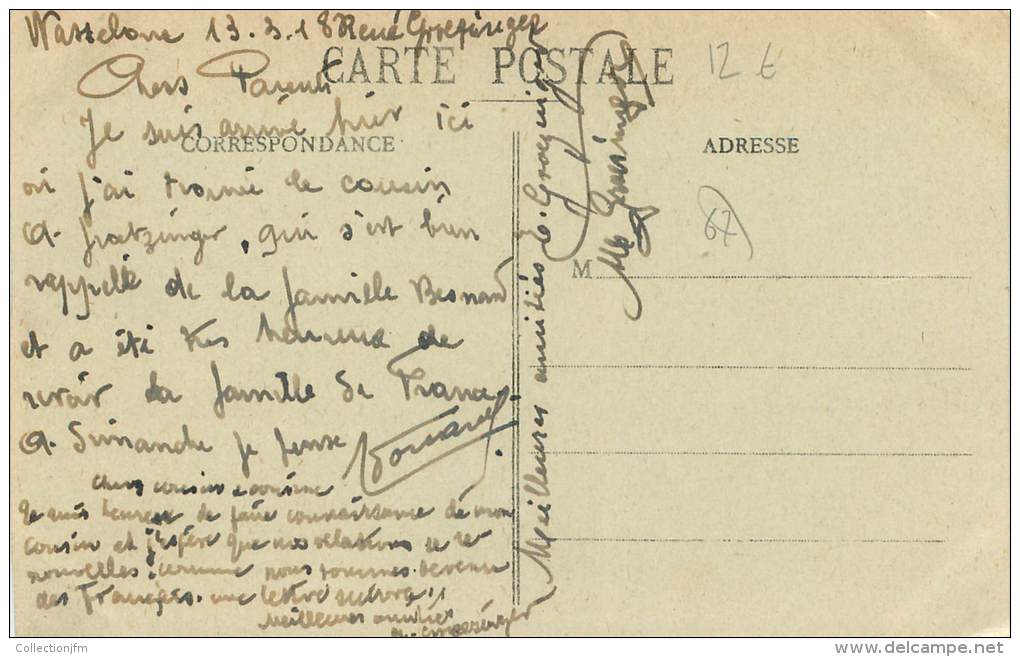 Wasselone 13.3.18 René Groetzinger
CARTE POSTALE
12 €
Chers Parents
Je suis arrivé hier ici
CORRESPONDANCE
ADRESSE
où j'ai trouvé le cousin
A. Groetzinger, qui s'est bien
rappellé de la famille Besnard
et a été très heureux de
revoir la famille de France
A Dimanche je pense
Chers cousin & cousine
Je suis heureux de faire connaissance de mon
cousin et j'espère que nos relations se re-
nouvelles. comme nous sommes devenu
des Français. une lettre suivra!!
Meilleures amitiés
Meilleures amitiés
M
67
Collectionjfm
delcampe.net